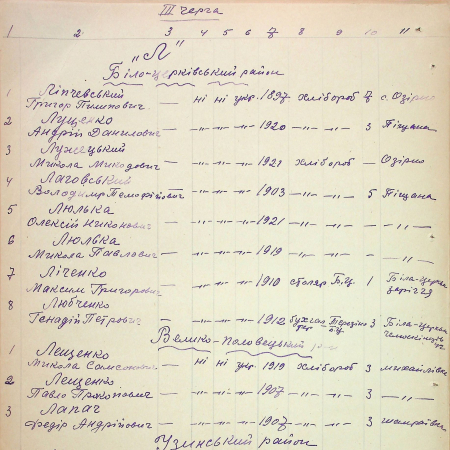 III черга
1 2 3 4 5 6 7 8 9 10 11
"Л"
Біло-церківський район
1 Ліпчевський
Григор Пимпович — ні ні укр. 1897 хлібороб 7 с. Озірно
2 Луценко
Андрій Данилович — —"— —"— —"— 1920 —"— 3 Піщана
3 Лужецький
Микола Микодович — —"— —"— —"— 1921 хлібороб — Озірно
4 Лаговський
Володимир —"— —"— —"— 1903 —"— 5 Піщана
5 Люлька
Олексій Никонович — —"— —"— —"— 1921 —"— — —"—
6 Люлька
Микола Павлович — —"— —"— —"— 1919 —"— — —"—
7 Ліченко
Максим Григорович — —"— —"— —"— 1910 столяр Б.Ц. 1 Біла-Церква
8 Любченко
Генадій Петрович — —"— —"— —"— 1912 3 Біла-Церква
Велико-Половецький р-н
1 Лещенко
Микола Самсонович ні ні укр 1919 хлібороб 3 михайлівка
2 Лещенко
Павло Прокопович — —"— —"— —"— 1907 —"— 3 —"—
3 Лапач
Федір Андрійович — —"— —"— —"— 1907 —"— 3
Узинський район